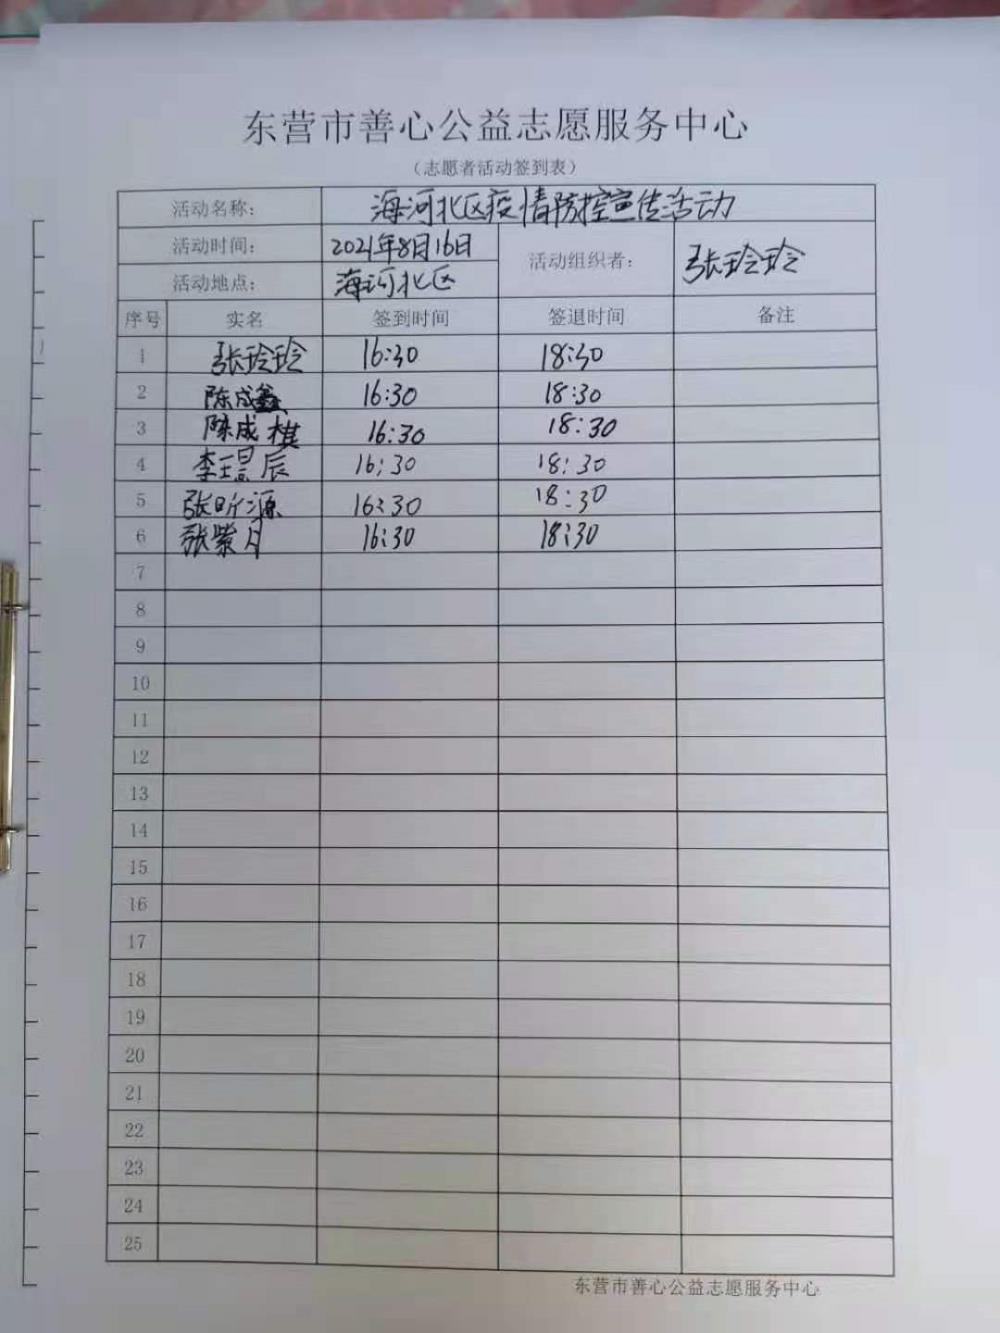 东营市善心公益志愿服务中心
（志愿者活动签到表）
活动名称： 海河北区疫情防控宣传活动
活动时间： 2021年8月16日 活动组织者： 张玲玲
活动地点： 海河北区
序号 实名 签到时间 签退时间 备注
1 张玲玲 16:30 18:30
2 陈成鑫 16:30 18:30
3 陈成棋 16:30 18:30
4 李璟辰 16:30 18:30
5 张昕源 16:30 18:30
6 张紫月 16:30 18:30
7
8
9
10
11
12
13
14
15
16
17
18
19
20
21
22
23
24
25
东营市善心公益志愿服务中心